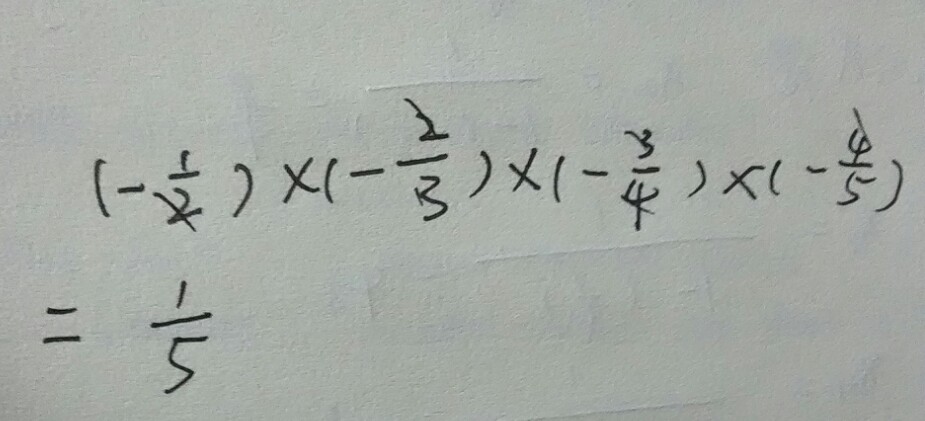 (-1/2)×(-2/3)×(-3/4)×(-4/5)
= 1/5